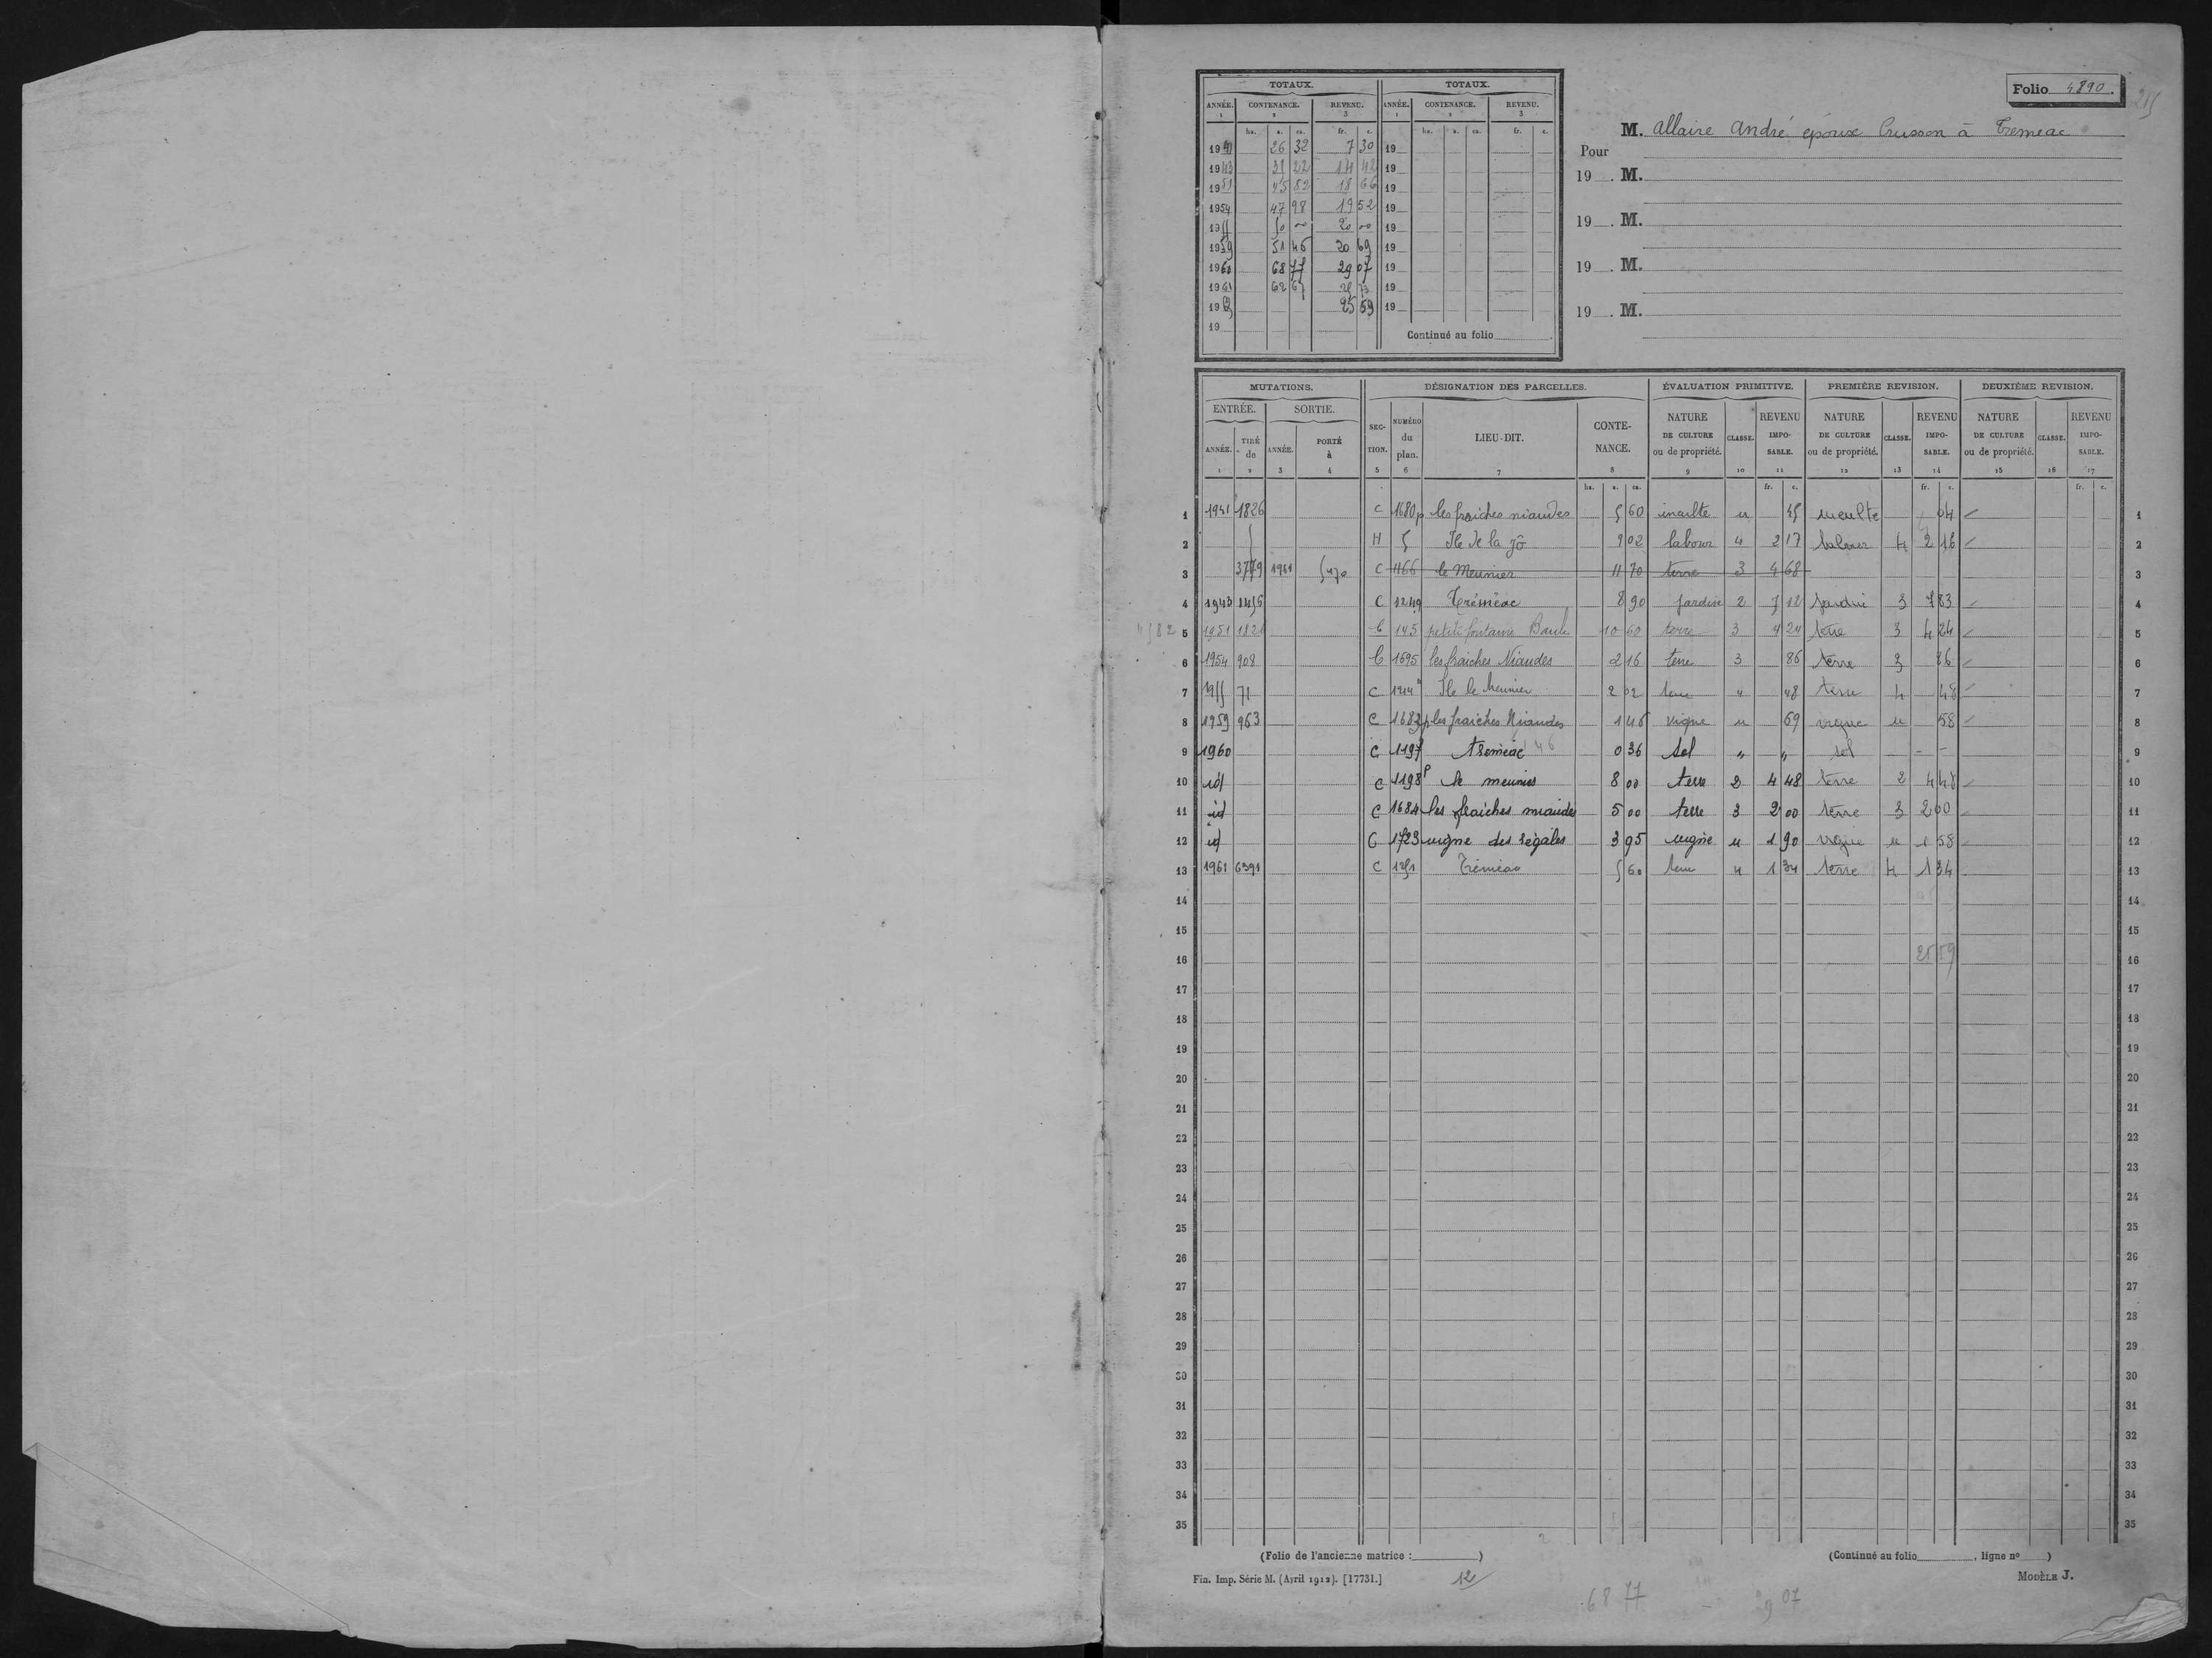 Folio 4890.
215
TOTAUX. TOTAUX.
ANNÉE. CONTENANCE. REVENU. ANNÉE. CONTENANCE. REVENU.
1 2 3 1 2 3
ha. a. ca. fr. c. ha. a. ca. fr. c.
26 32 7 30 19
1943 22 14 42 19
1951 45 82 18 66 19
1954 47 98 19 52 19
1955 50 00 20 00 19
1959 51 46 20 69 19
1960 68 77 29 07 19
1961 62 67 25 73 19
19 25 59 19
19
Continué au folio
M. Allaire André époux Crusson à Tremeac
Pour
19 . M.
19 . M.
19 . M.
19 . M.
MUTATIONS. DÉSIGNATION DES PARCELLES. ÉVALUATION PRIMITIVE. PREMIÈRE REVISION. DEUXIÈME REVISION.
ENTRÉE. SORTIE. SEC-TION. NUMÉRO du plan. LIEU-DIT. CONTE-NANCE. NATURE DE CULTURE ou de propriété. CLASSE. REVENU IMPO-SABLE. NATURE DE CULTURE ou de propriété. CLASSE. REVENU IMPO-SABLE. NATURE DE CULTURE ou de propriété. CLASSE. REVENU IMPO-SABLE.
ANNÉE. TIRÉ de ANNÉE. PORTÉ à
1 2 3 4 5 6 7 8 9 10 11 12 13 14 15 16 17
ha. a. ca. fr. c. fr. c. fr. c.
1 1941 1826 C 1680p les fraiches niaudes 5 60 inculte u 45 inculte 04 1
2 H 5 Ile de la Jô 9 02 labour 4 2 17 labour 4 2 16 2
3 3779 1961 5470 C 1166 le Meunier 11 70 terre 3 4 68 3
4 1943 C 1249 Tréméac 8 90 jardin 2 7 12 jardin 3 7 83 4
4582 5 1951 1826 C 145 petite fontaine Baule 10 60 terre 3 4 24 terre 3 4 24 5
6 1954 908 C 1695 les fraiches Niaudes 2 16 terre 3 86 terre 3 86 6
7 1955 71 C 1214 Ile le Meunier 2 02 terre 4 48 terre 4 48 7
8 1959 963 C 1682p les fraiches Niaudes 1 46 vigne u 69 vigne u 58 8
9 1960 C 1197 Tremeac 46 0 36 sol " " sol - - 9
10 id C 1198p le meunier 8 00 terre 2 4 48 terre 2 4 48 10
11 id C 1684 les fraiches niaudes 5 00 terre 3 2 00 terre 3 2 00 11
12 id C 1723 vigne des segales 3 95 vigne u 1 90 vigne u 1 58 12
13 1961 6391 C 1251 Tréméac 5 60 terre 4 1 34 terre 4 1 34 13
14 14
15 15
16 25 59 16
17 17
18 18
19 19
20 20
21 21
22 22
23 23
24 24
25 25
26 26
27 27
28 28
29 29
30 30
31 31
32 32
33 33
34 34
35 35
(Folio de l'ancienne matrice : ) (Continué au folio , ligne nº )
Fin. Imp. Série M. (Avril 1912). [17731.] 12 MODÈLE J.
68 77 29 07